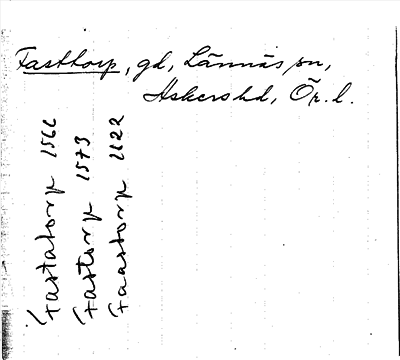 Fasttorp, gd, Lännäs sn,
Askers hd, Ör. l.
Fastatorp 1562
Fastorp 1573
Faastorp 1622